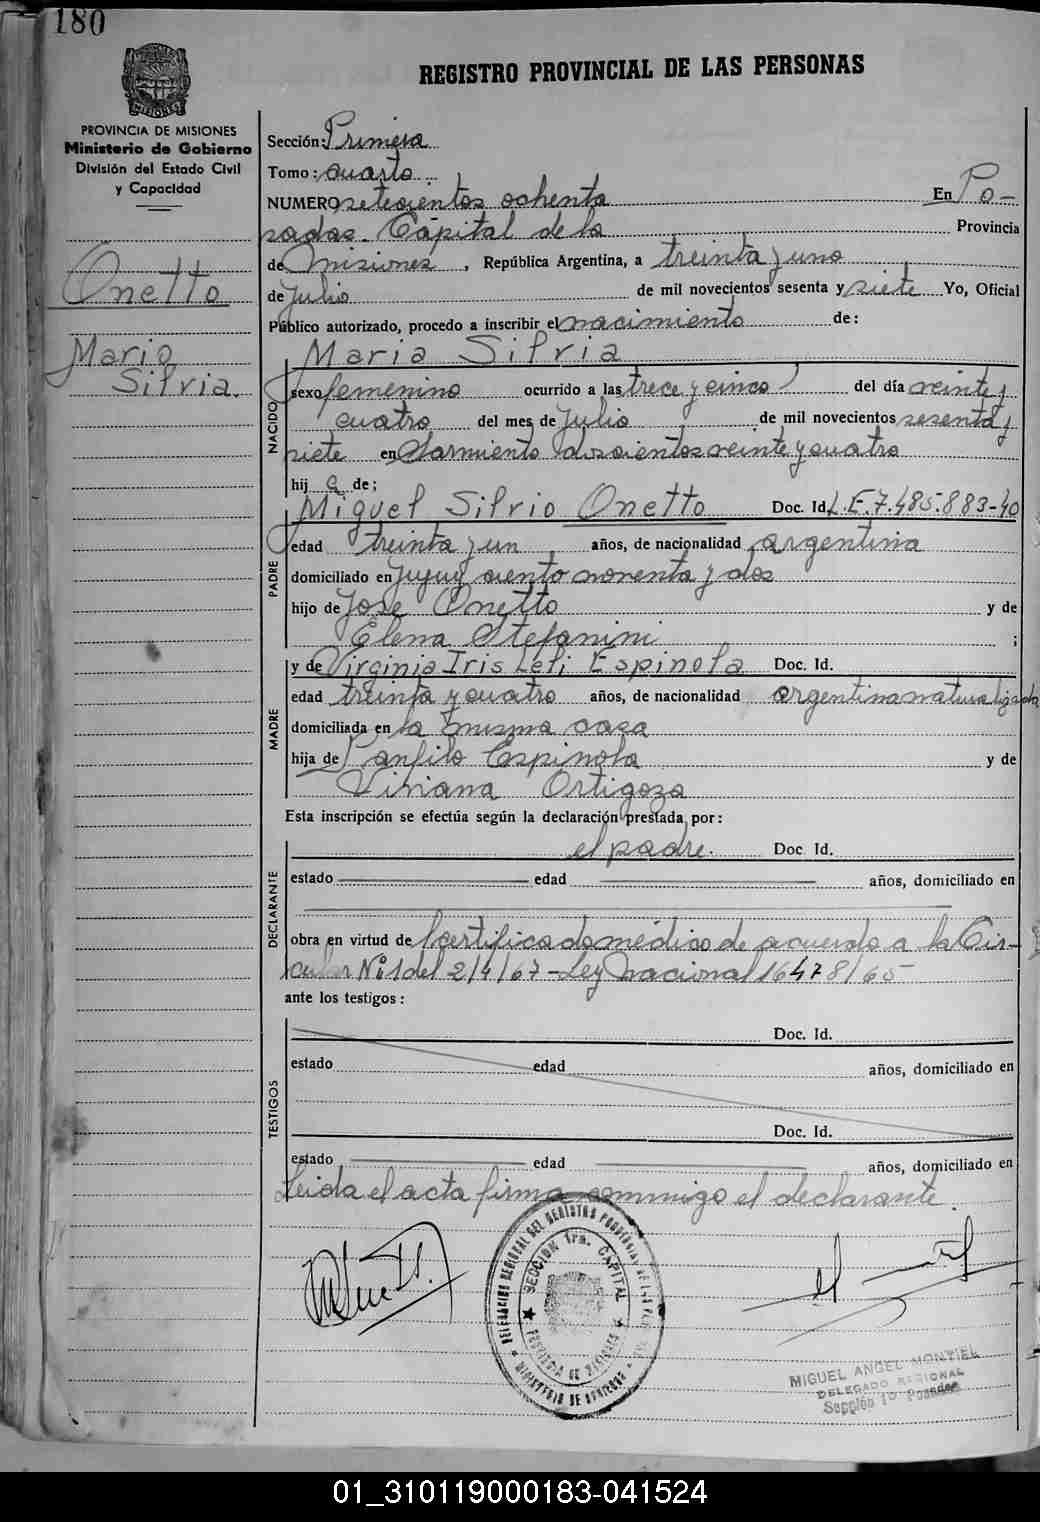 180
PROVINCIA DE MISIONES
Ministerio de Gobierno
División del Estado Civil
y Capacidad
Onetto
Maria
Silvia.
REGISTRO PROVINCIAL DE LAS PERSONAS
Sección: Primera
Tomo: cuarto.
NUMERO setecientos ochenta En Po-
sadas. Capital de la Provincia
de Misiones, República Argentina, a treinta y uno
de Julio de mil novecientos sesenta y siete Yo, Oficial
Público autorizado, procedo a inscribir el nacimiento de:
NACIDO
Maria Silvia
sexo femenino ocurrido a las trece y cinco del día veinte y
cuatro del mes de Julio de mil novecientos sesenta y
siete en Sarmiento doscientos veinte y cuatro
hij a de:
PADRE
Miguel Silvio Onetto Doc. Id. L.E.7.485.883-40
edad treinta y un años, de nacionalidad argentina
domiciliado en Jujuy ciento noventa y dos
hijo de José Onetto y de
Elena Stefanini ;
MADRE
y de Virginia Iris Leli Espinola Doc. Id.
edad treinta y cuatro años, de nacionalidad argentina naturalizada
domiciliada en la misma casa
hija de Panfilo Espinola y de
Viviana Ortigoza
Esta inscripción se efectúa según la declaración prestada por:
DECLARANTE
el padre. Doc. Id.
estado edad años, domiciliado en
obra en virtud de certificado médico de acuerdo a la Cir-
cular Nº 1 del 2/4/67-Ley nacional 16478/65
ante los testigos:
TESTIGOS
Doc. Id.
estado edad años, domiciliado en
Doc. Id.
estado edad años, domiciliado en
Leida el acta firma conmigo el declarante.
DELEGACION REGIONAL DEL REGISTRO PROVINCIAL DE LAS PERSONAS
SECCION 1ra. CAPITAL
PROVINCIA DE MISIONES
MINISTERIO DE GOBIERNO
MIGUEL ANGEL MONTIEL
DELEGADO REGIONAL
Sección 1º Posadas
01_310119000183-041524